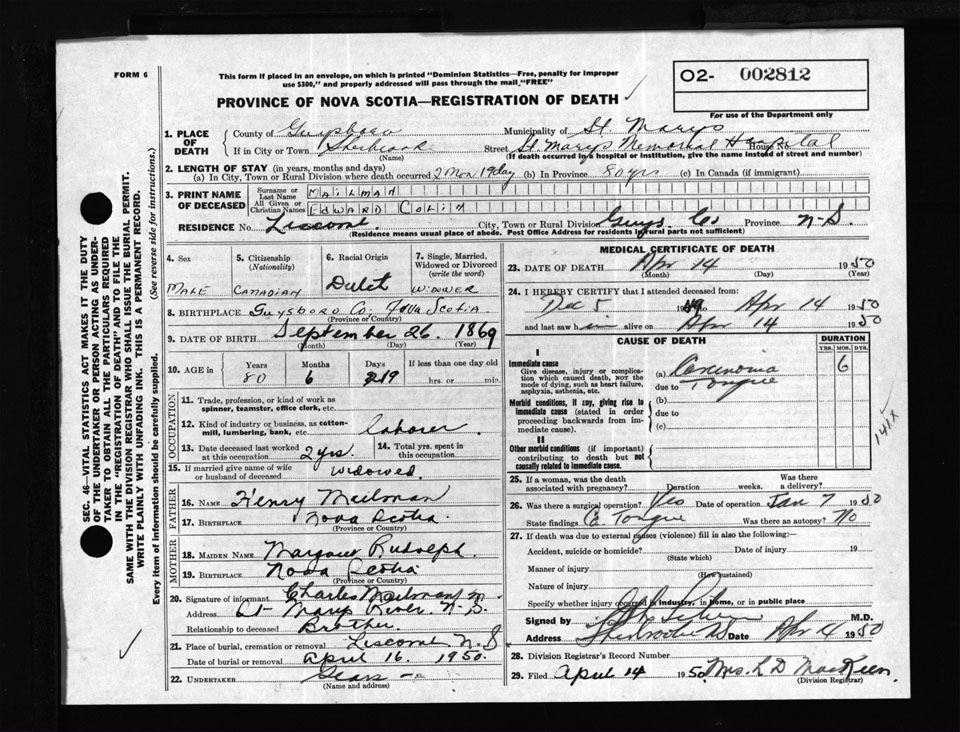 FORM 6
This form if placed in an envelope, on which is printed "Dominion Statistics—Free, penalty for improper
use $300," and properly addressed will pass through the mail "FREE"
O2- 002812
For use of the Department only
PROVINCE OF NOVA SCOTIA—REGISTRATION OF DEATH
1. PLACE OF DEATH
County of Guysboro Municipality of St Marys
If in City or Town Sherbrooke Street St Marys Memorial Hospital House No.
(Name) (If death occurred in a hospital or institution, give the name instead of street and number)
2. LENGTH OF STAY (in years, months and days)
(a) In City, Town or Rural Division where death occurred 2 Mon 19 day (b) In Province 80 yrs (c) In Canada (if immigrant)
3. PRINT NAME OF DECEASED
Surname or Last Name MAILMAN
All Given or Christian Names EDWARD COLIN
RESIDENCE No. Liscomb City, Town or Rural Division Guys. Co Province N-S.
(Residence means usual place of abode. Post Office Address for residents in rural parts not sufficient)
4. Sex MALE
5. Citizenship (Nationality) CANADIAN
6. Racial Origin
7. Single, Married, Widowed or Divorced (write the word) WIDOWER
8. BIRTHPLACE Guysboro Co. Nova Scotia
(Province or Country)
9. DATE OF BIRTH September 26 1869
(Month) (Day) (Year)
10. AGE IN Years 80 Months 6 Days 19 If less than one day old hrs. or min.
OCCUPATION
11. Trade, profession, or kind of work as
spinner, teamster, office clerk, etc.
12. Kind of industry or business, as cotton-
mill, lumbering, bank, etc. Laborer
13. Date deceased last worked at this occupation 2 yrs.
14. Total yrs. spent in this occupation
15. If married give name of wife
or husband of deceased widowed
FATHER
16. NAME Henry Mailman
17. BIRTHPLACE Nova Scotia
(Province or Country)
MOTHER
18. MAIDEN NAME Margaret Rudolph
19. BIRTHPLACE Nova Scotia
(Province or Country)
20. Signature of informant Charles Mailman
Address St Marys River N-S.
Relationship to deceased Brother
21. Place of burial, cremation or removal Liscomb N.S
Date of burial or removal April 16. 1950.
22. UNDERTAKER Sears
(Name and address)
MEDICAL CERTIFICATE OF DEATH
23. DATE OF DEATH Apr 14 1950
(Month) (Day) (Year)
24. I HEREBY CERTIFY that I attended deceased from:
Dec 5 1949 to Apr 14 1950
and last saw him alive on Apr 14 1950
CAUSE OF DEATH
DURATION
YRS. MOS. DYS.
I
Immediate cause
Give disease, injury or complica-
tion which caused death, not the
mode of dying, such as heart failure,
asphyxia, asthenia, etc.
(a) Carcinoma 6
due to Tongue
Morbid conditions, if any, giving rise to
immediate cause (stated in order
proceeding backwards from im-
mediate cause).
(b)
due to
(c)
II
Other morbid conditions (if important)
contributing to death but not
causally related to immediate cause.
141X
25. If a woman, was the death
associated with pregnancy? Duration weeks. Was there a delivery?
26. Was there a surgical operation? Yes Date of operation Jan 7 1950
State findings Ca Tongue Was there an autopsy? No
27. If death was due to external causes (violence) fill in also the following:—
Accident, suicide or homicide? Date of injury 19
(State which)
Manner of injury
(How sustained)
Nature of injury
Specify whether injury occurred in industry, in home, or in public place
Signed by M.D.
Address Sherbrooke NS Date Apr 14 1950
28. Division Registrar's Record Number
29. Filed April 14 1950 Mrs. R D MacKeen
(Division Registrar)
SEC. 46—VITAL STATISTICS ACT MAKES IT THE DUTY
OF THE UNDERTAKER OR PERSON ACTING AS UNDER-
TAKER TO OBTAIN ALL THE PARTICULARS REQUIRED
IN THE "REGISTRATION OF DEATH" AND TO FILE THE
SAME WITH THE DIVISION REGISTRAR WHO SHALL ISSUE THE BURIAL PERMIT.
WRITE PLAINLY WITH UNFADING INK. THIS IS A PERMANENT RECORD.
Every item of information should be carefully supplied. (See reverse side for instructions.)